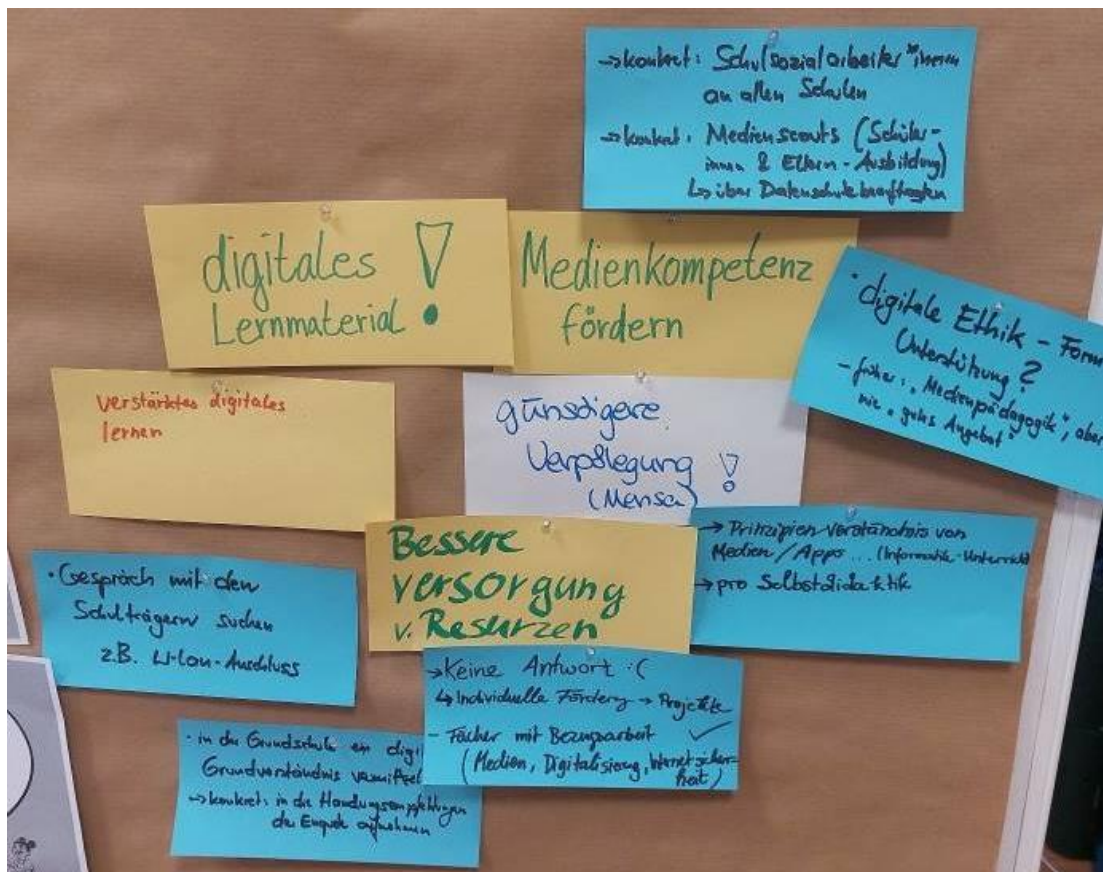 → konkret: Schulsozialarbeiter*innen
an allen Schulen
→ konkret: Medienscouts (Schüler-
innen & Eltern-Ausbildung)
↳ über Datenschutzbeauftragten
digitales !
Lernmaterial
Medienkompetenz
fördern
· digitale Ethik - Form
Unterstützung?
- früher: "Medienpädagogik", aber
nie "gutes Angebot"
verstärktes digitales
lernen
günsdigere
Verpflegung !
(Mensa)
Bessere
versorgung
v. Resurzen
→ Prinzipien-verständnis von
Medien/Apps ... (Informatik-Unterricht)
→ pro Selbstdidaktik
· Gespräch mit den
Schulträgern suchen
z.B. W-lan-Anschluss
→ Keine Antwort :(
↳ Individuelle Förderg → Projekte
- Fächer mit Bezugsarbeit ✓
(Medien, Digitalisierung, Internetsicher-
heit)
· in der Grundschule ein digi
Grundverständnis vermittel
→ konkret: in die Handlungsempfehlungen
der Enquete aufnehmen